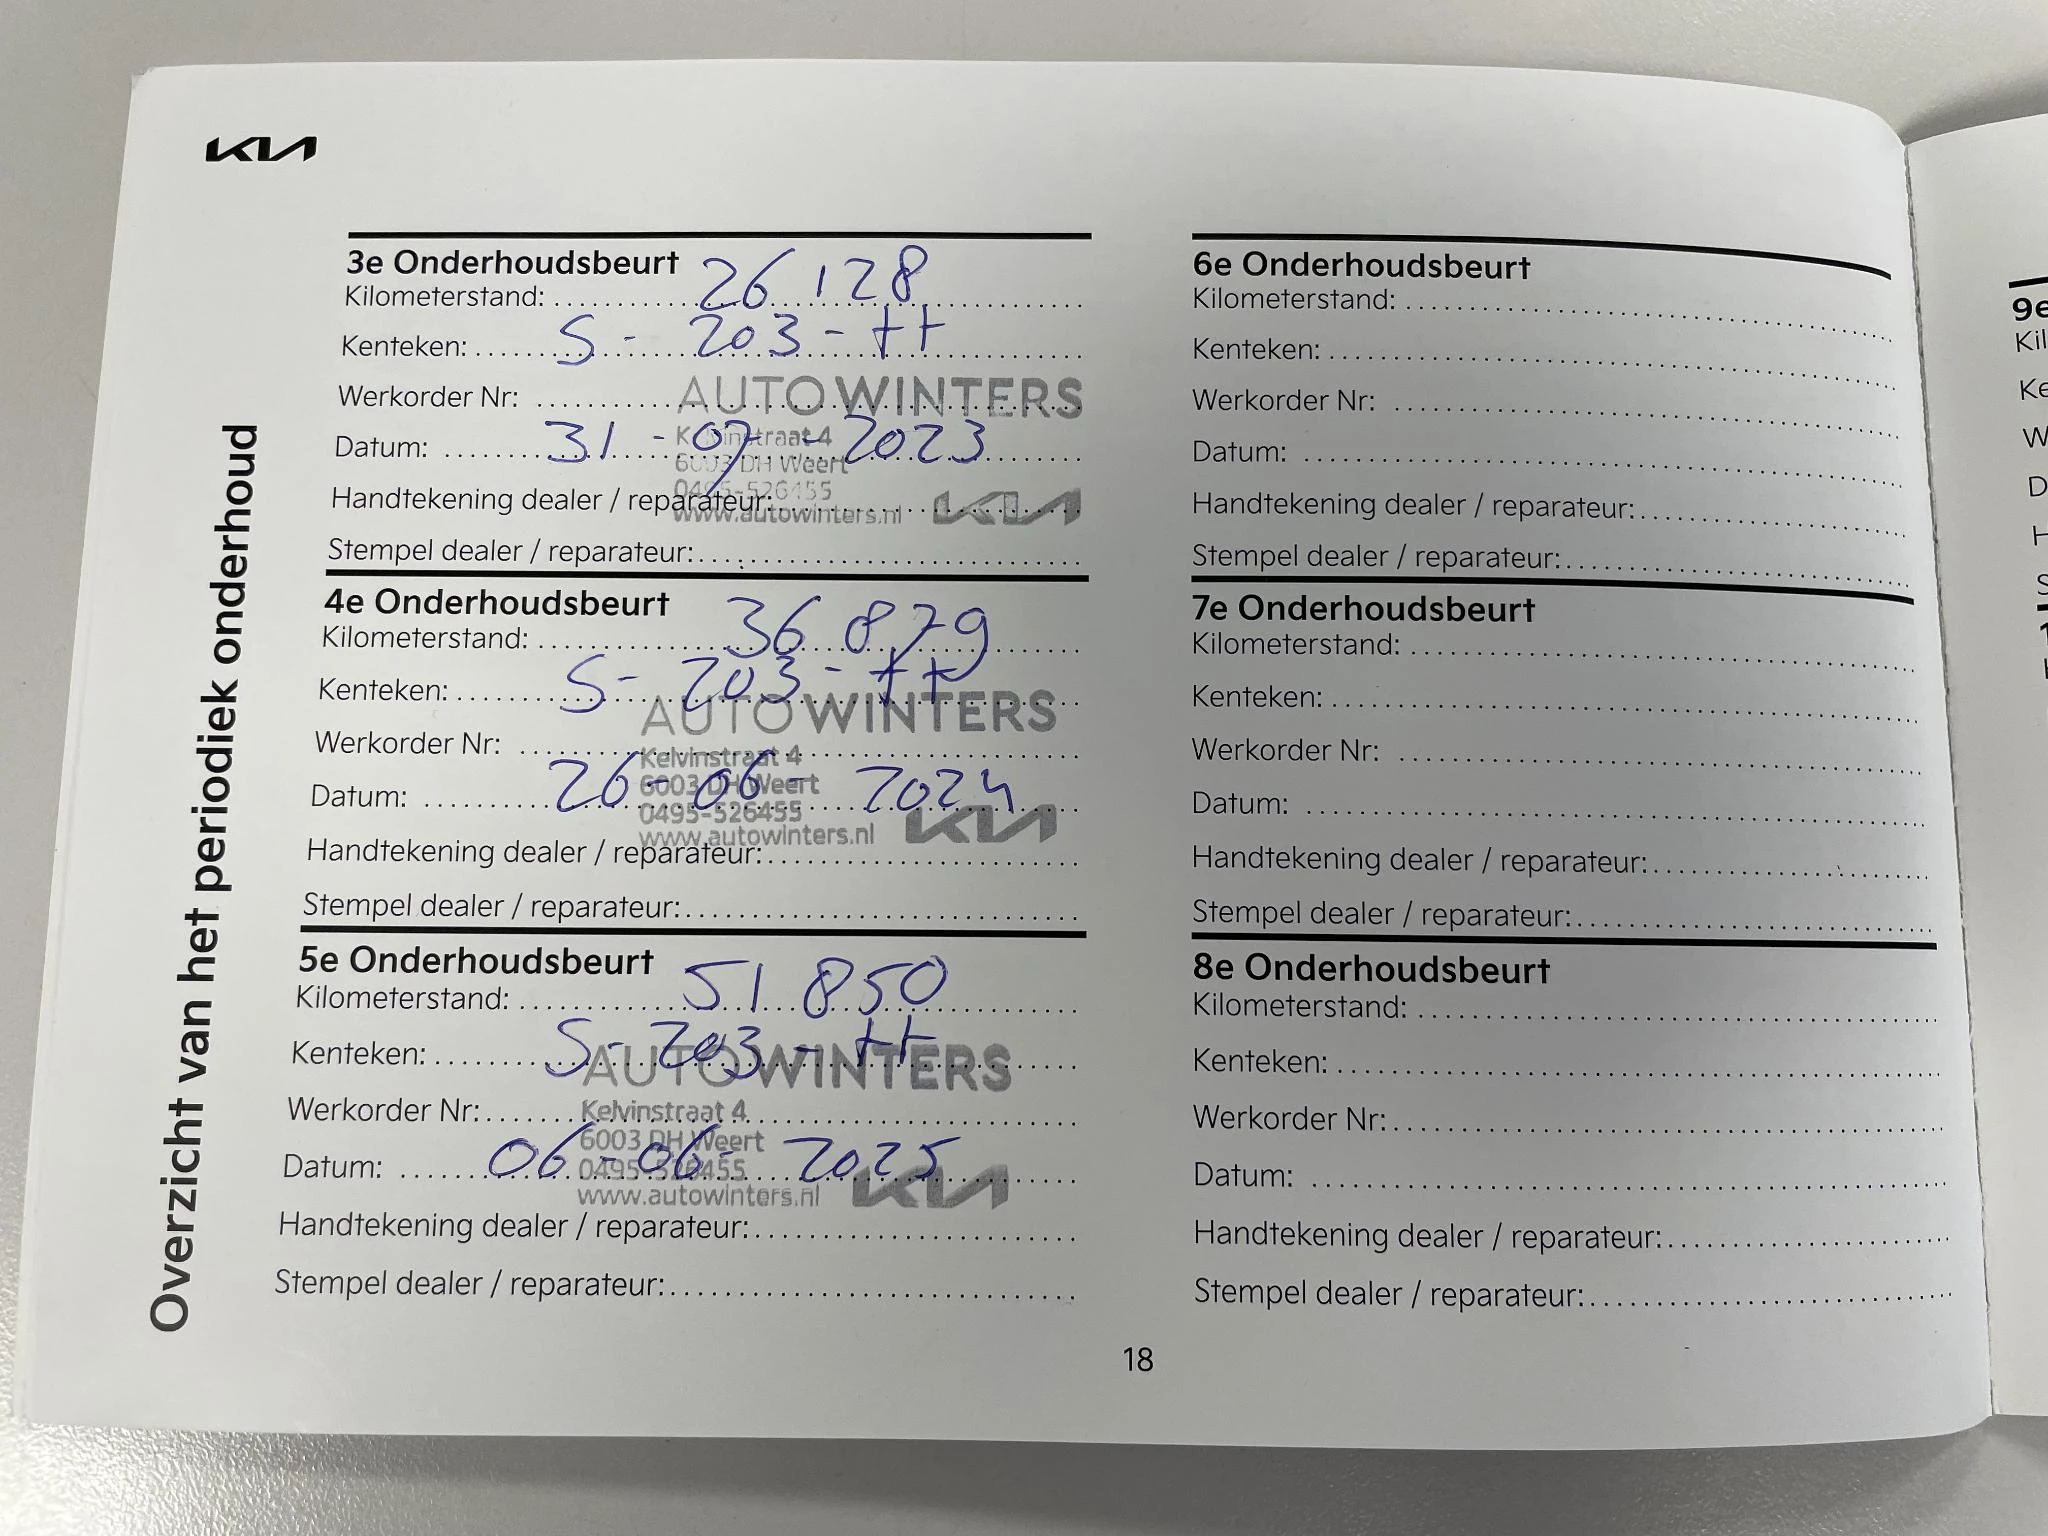 KIA
Overzicht van het periodiek onderhoud
3e Onderhoudsbeurt
Kilometerstand: 26 128
Kenteken: S - 203 - tt
Werkorder Nr:
AUTO WINTERS
Kelvinstraat 4
6003 DH Weert
0495-526455
www.autowinters.nl
KIA
Datum: 31 - 07 - 2023
Handtekening dealer / reparateur:
Stempel dealer / reparateur:
4e Onderhoudsbeurt
Kilometerstand: 36 879
Kenteken: S - 203 - tt
Werkorder Nr:
AUTO WINTERS
Kelvinstraat 4
6003 DH Weert
0495-526455
www.autowinters.nl
KIA
Datum: 26 - 06 - 2024
Handtekening dealer / reparateur:
Stempel dealer / reparateur:
5e Onderhoudsbeurt
Kilometerstand: 51 850
Kenteken: S - 203 - tt
AUTO WINTERS
Werkorder Nr:
Kelvinstraat 4
6003 DH Weert
0495-526455
www.autowinters.nl
KIA
Datum: 06 - 06 - 2025
Handtekening dealer / reparateur:
Stempel dealer / reparateur:
6e Onderhoudsbeurt
Kilometerstand:
Kenteken:
Werkorder Nr:
Datum:
Handtekening dealer / reparateur:
Stempel dealer / reparateur:
7e Onderhoudsbeurt
Kilometerstand:
Kenteken:
Werkorder Nr:
Datum:
Handtekening dealer / reparateur:
Stempel dealer / reparateur:
8e Onderhoudsbeurt
Kilometerstand:
Kenteken:
Werkorder Nr:
Datum:
Handtekening dealer / reparateur:
Stempel dealer / reparateur:
18
9e
Kil
Ke
W
D